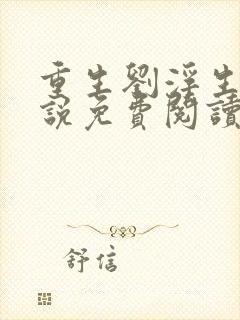 重生劉淫生
說免費閱讀
舒信